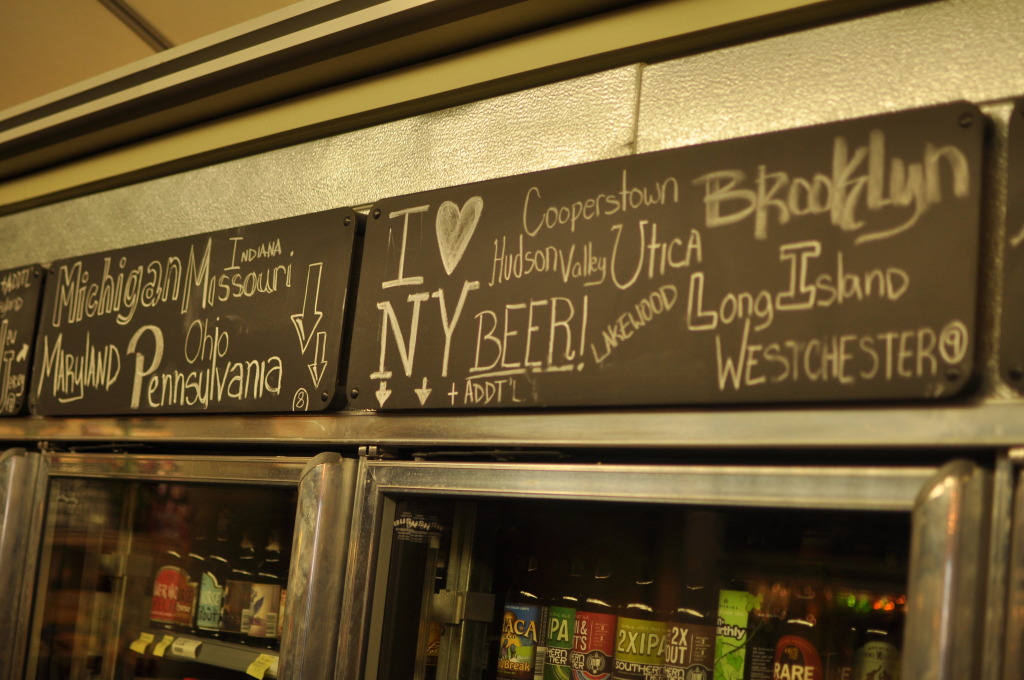 Michigan Missouri
Indiana
Maryland Pennsylvania
Ohio
8
I ♥
NY BEER!
+ ADDT'L
Cooperstown
Hudson Valley Utica
Lakewood
Brooklyn
Long Island
WESTCHESTER 9
ACA
Break
IPA
2XIPA
SOUTHERN
2X
OUT
RARE